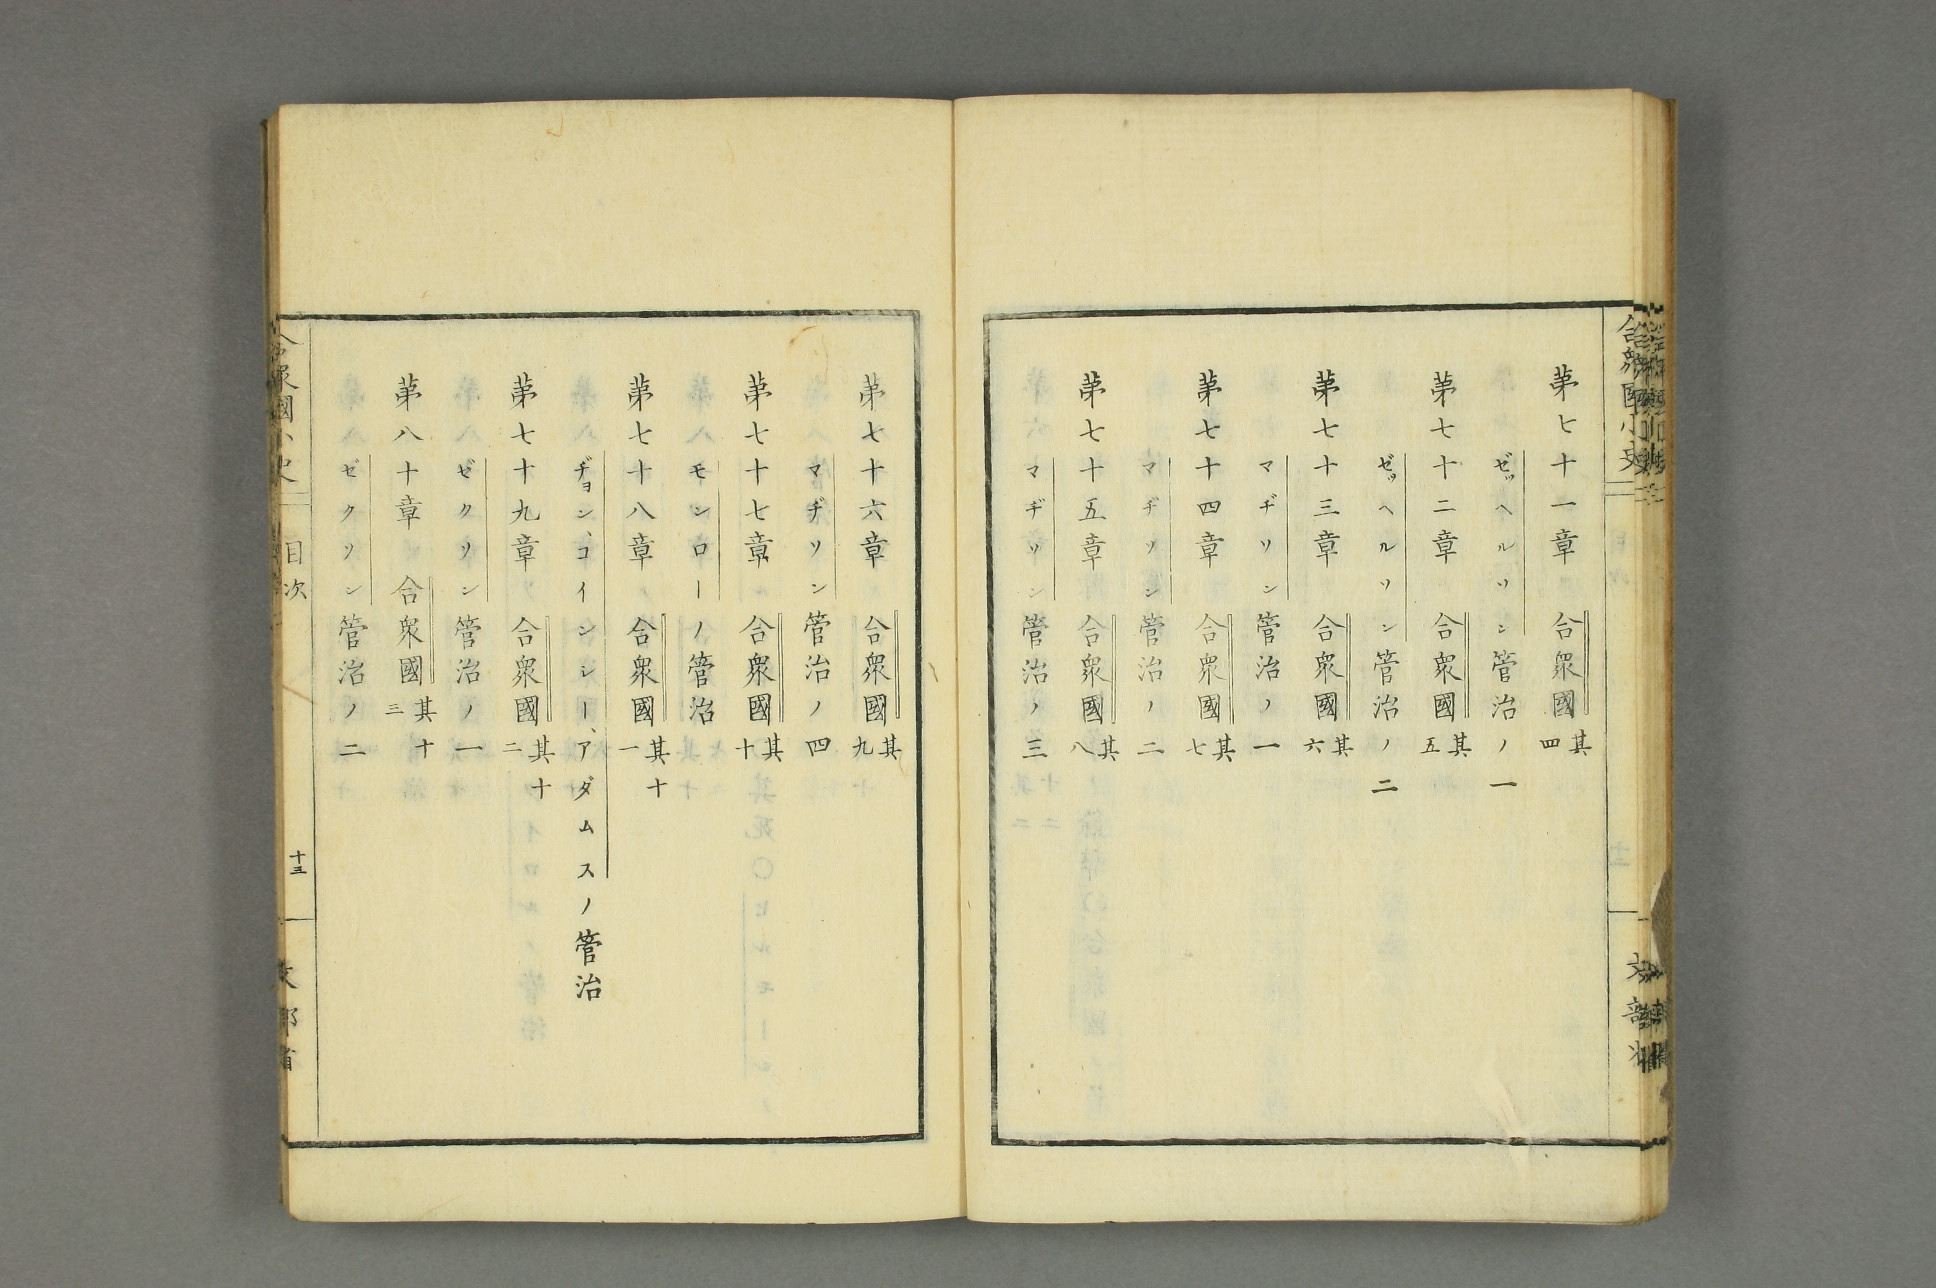 第七十一章 合衆國 其四
ゼッヘルソン管治ノ一
第七十二章 合衆國 其五
ゼッヘルソン管治ノ二
第七十三章 合衆國 其六
マヂソン管治ノ一
第七十四章 合衆國 其七
マヂソン管治ノ二
第七十五章 合衆國 其八
マヂソン管治ノ三
第七十六章 合衆國 其九
マヂソン管治ノ四
第七十七章 合衆國 其十
モンローノ管治
第七十八章 合衆國 其十一
ヂョン、コインシー、アダムスノ管治
第七十九章 合衆國 其十二
ゼクソン管治ノ一
第八十章 合衆國 其十三
ゼクソン管治ノ二
合衆國小史 目次 十三 文部省